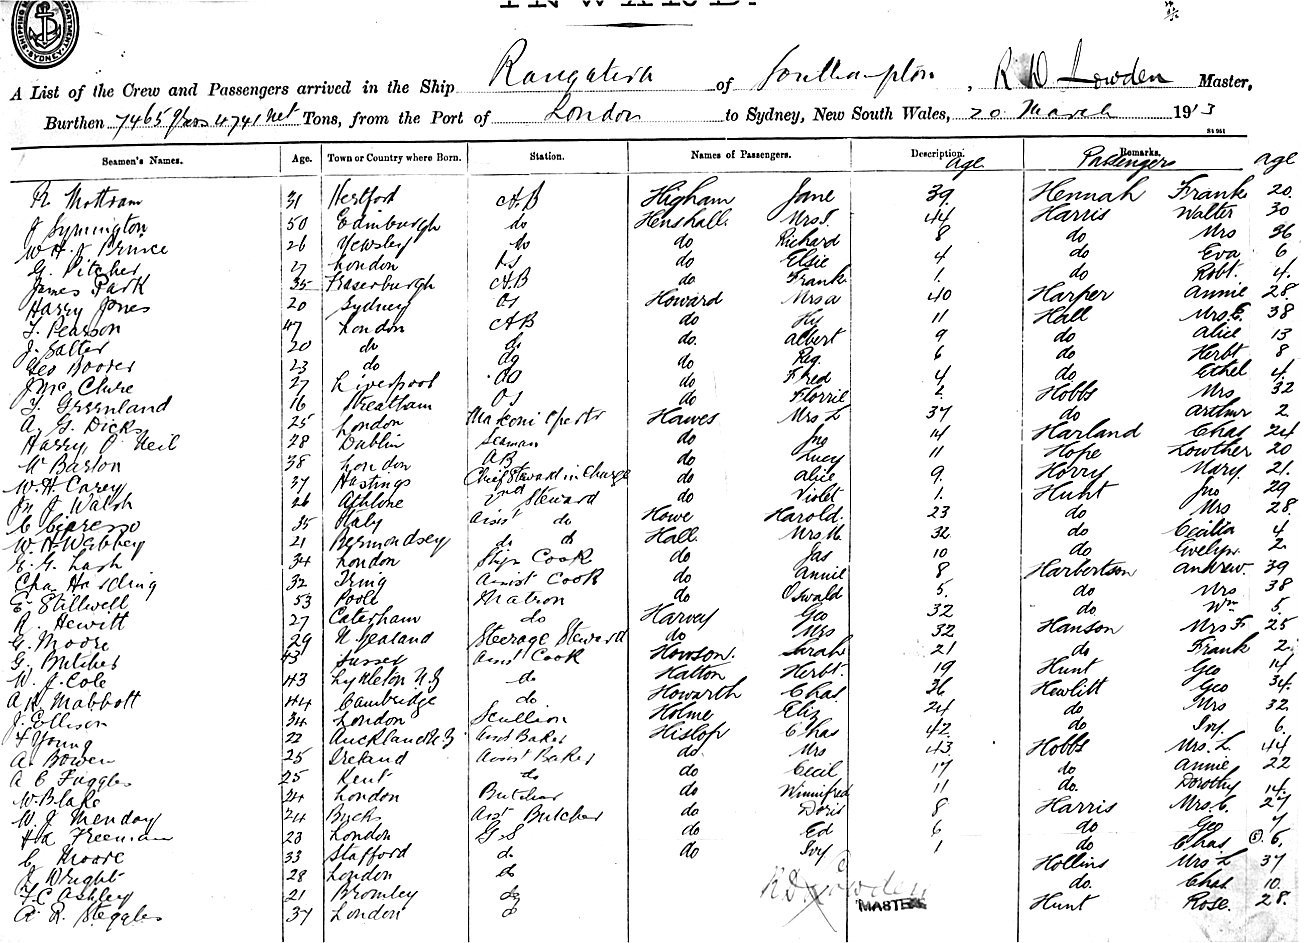 INWARD.
SHIPPING
SYDNEY
A List of the Crew and Passengers arrived in the Ship Rangatira of Southampton, R D Lowden Master,
Burthen 7465 gross 4741 net Tons, from the Port of London to Sydney, New South Wales, 20 March 1913
Seamen's Names. Age. Town or Country where Born. Station. Names of Passengers. Description. age Remarks. Passengers age
R. Mottram 31 Hertford AB Higham Jane 39 Hennah Frank 20
J Symington 50 Edinburgh do Henshall Mrs J. 44 Harris Walter 30
W H J Prince 26 Yewsley do do Richard 8 do Mrs 36
G. Pitcher 27 London OS do Elsie 4 do Eva 6
James Park 35 Fraserburgh AB do Frank 1 do Robt. 4
Harry Jones 20 Sydney OS Howard Mrs A 40 Harper Annie 28
T. Pearson 47 London AB do Hy 11 Hall Mrs E. 38
J. Salter 20 do do do Albert 9 do Alice 13
Geo Boorer 23 do do do Reg 6 do Herbt 8
J Mc Clure 27 Liverpool do do Fred 4 do Ethel 4
T. Greenland 16 Streatham OS do Florrie 2 Hobbs Mrs 32
A. G. Dicks 25 London Makoni Operts Hawes Mrs L 37 do Arthur 2
Harry O' Neil 28 Dublin Seaman do Jno 14 Harland Chas 24
W Barton 38 London AB do Lucy 11 Hope Lowther 20
W. H. Carey 37 Hastings Chief Steward in Charge do Alice 9 Horry Mary 21
Jn J Walsh 26 Athlone 2nd Steward do Violet 1 Hunt Jno 29
C Cipresso 35 Italy Assist do Howe Harold 23 do Mrs 28
W. H Wabbey 21 Bermondsey do do Hall Mrs M. 32 do Cecilia 4
E. G. Lash 34 London Ships Cook do Jas 10 do Evelyn 2
Chas Harding 32 Tring Assist Cook do Annie 8 Harbertson Andrew 39
E Stillwell 53 Poole Matron do Oswald 5 do Mrs 38
A. Hewitt 27 Caterham do Harvey Geo 32 do Wm 5
G. Moore 29 N Zealand Steerage Steward do Mrs 32 Hanson Mrs F. 25
G. Butcher 43 Sussex Asst Cook Howson Sarah 21 do Frank 2
W. J. Cole 43 Lyttleton N.Z do Hatton Herbt. 19 Hunt Geo 14
A. W Mabbott 44 Cambridge do Howarth Chas 36 Hewlitt Geo 34
J. Ellison 34 London Scullion Holme Eliz 24 do Mrs 32
F Young 22 Auckland N.Z Asst Baker Hislop Chas 42 do Ivy 6
A. Bowen 25 Ireland Assist Baker do Mrs 43 Hobbs Mrs. L 44
A C Fuggles 25 Kent do do Cecil 17 do Annie 22
W. Blake 24 London Butcher do Winnifred 11 do Dorothy 14
W. J Menday 24 Bucks Asst Butcher do Doris 8 Harris Mrs. C. 27
Freeman 23 London G.S do Ed 6 do Geo 7
C. Moore 33 Stafford do do Ivy 1 do Chas 6
J Wright 28 London do Hollins Mrs L 37
F. C Ashley 21 Bromley do R D Lowden MASTER do Chas 10
A. R. Steggles 37 London do Hunt Rose 28